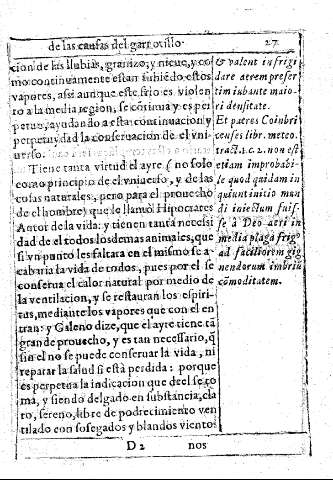 de las causas del garrotillo. 27
cion de las llubias, granizo, y nieue, y co
mo continuamente estan subiẽdo estos
vapores, assi aunque este frio es violen
to a la media region, se cõtinua y es per
petuo, ayudando a esta continuacion y
perpetuydad la conseruacion de el vni
uerso.
Tiene tanta virtud el ayre (no solo
como principio de el vniuerso, y de las
cosas naturales, pero para el prouecho
de el hombre) que le llamò Hipocrates
Autor de la vida: y tienen tanta necesi
dad de el todos los demas animales, que
si vn punto les faltara en el mismo se a-
cabaria la vida de todos, pues por el se
conserua el calor natural por medio de
la ventilacion, y se restauran los espiri-
tus, mediante los vapores que con el en
tran: y Galeno dize, que el ayre tiene tã
gran de prouecho, y es tan necessario, q̃
sin el no se puede conseruar la vida, ni
reparar la salud si està perdida: porque
es perpetua la indicacion que de el se to
ma, y siendo delgado en substancia, cla
ro, sereno, libre de podrecimiento ven
tilado con sosegados y blandos viento
D 2 nos
& valent infrigi
dare aerem præser
tim iubante maio-
ri densitate.
Et patres Coimbri
censes libr. meteo.
tract. 1. c. 2. non est
etiam improbabi-
le quod quidam in
quiunt initio mun
di iniectum fuis-
se à Deo aeri in
media plaga frigo
ad faciliorem gig
nendorum imbriũ
cõmoditatem.